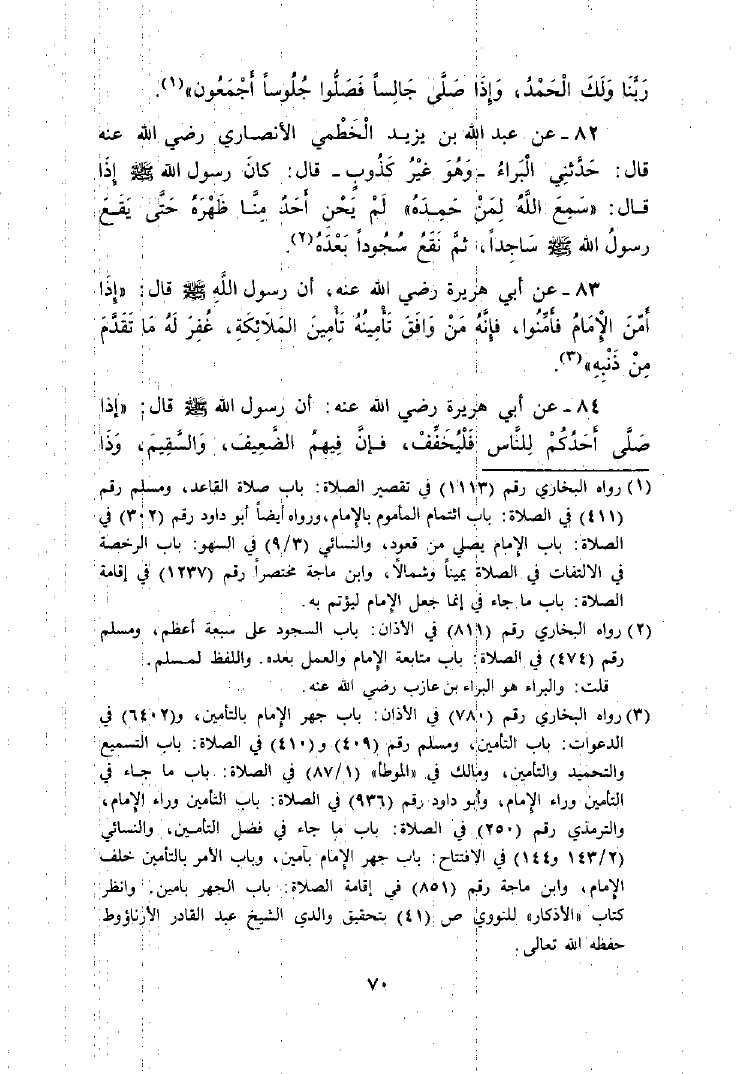 رَبَّنَا وَلَكَ الْحَمْدُ، وَإِذَا صَلَّى جَالِساً فَصَلُّوا جُلُوساً أَجْمَعُون»(١).
٨٢ ـ عن عبد الله بن يزيد الْخَطْمي الأنصاري رضي الله عنه
قال: حَدَّثنِي الْبَراءُ ـ وَهُوَ غَيْرُ كَذُوبٍ ـ قال: كانَ رسول الله ﷺ إِذَا
قـال: «سَمِعَ اللَّهُ لِمَنْ حَمِدَهُ» لَمْ يَحْنِ أَحَدٌ مِنَّـا ظَهْرَهُ حَتَّى يَقَـعَ
رسولُ الله ﷺ سَاجِداً، ثمَّ نَقَعُ سُجُوداً بَعْدَهُ(٢).
٨٣ ـ عن أبي هريرة رضي الله عنه، أن رسول اللَّهِ ﷺ قال: «إِذَا
أَمَّنَ الْإِمَامُ فَأَمِّنُوا، فإنَّهُ مَنْ وَافَقَ تَأْمِينُهُ تَأْمِينَ المَلَائِكَةِ، غُفِرَ لَهُ مَا تَقَدَّمَ
مِنْ ذَنْبِهِ»(٣).
٨٤ ـ عن أبي هريرة رضي الله عنه: أن رسول الله ﷺ قال: «إذا
صَلَّى أَحَدُكُمْ لِلنَّاس فَلْيُخَفِّفْ، فـإنَّ فِيهِمُ الضَّعِيفَ، وَالسَّقِيمَ، وَذَا
(١) رواه البخاري رقم (١١١٣) في تقصير الصلاة: باب صلاة القاعد، ومسلم رقم
(٤١١) في الصلاة: باب ائتمام المأموم بالإمام، ورواه أيضاً أبو داود رقم (٣٠٢) في
الصلاة: باب الإمام يصلي من قعود، والنسائي (٩/٣) في السهو: باب الرخصة
في الالتفات في الصلاة يميناً وشمالاً، وابن ماجة مختصراً رقم (١٢٣٧) في إقامة
الصلاة: باب ما جاء في إنما جعل الإمام ليؤتم به.
(٢) رواه البخاري رقم (٨١١) في الأذان: باب السجود على سبعة أعظم، ومسلم
رقم (٤٧٤) في الصلاة: باب متابعة الإمام والعمل بعده. واللفظ لمسلم.
قلت: والبراء هو البراء بن عازب رضي الله عنه.
(٣) رواه البخاري رقم (٧٨٠) في الأذان: باب جهر الإمام بالتأمين، و(٦٤٠٢) في
الدعوات: باب التأمين، ومسلم رقم (٤٠٩) و(٤١٠) في الصلاة: باب التسميع
والتحميد والتأمين، ومالك في «الموطأ» (٨٧/١) في الصلاة: باب ما جـاء في
التأمين وراء الإمام، وأبو داود رقم (٩٣٦) في الصلاة: باب التأمين وراء الإمام،
والترمذي رقم (٢٥٠) في الصلاة: باب ما جاء في فضل التأمـين، والنسائي
(١٤٣/٢ و١٤٤) في الافتتاح: باب جهر الإمام بآمين، وباب الأمر بالتأمين خلف
الإمام، وابن ماجة رقم (٨٥١) في إقامة الصلاة: باب الجهر بامين. وانظر
كتاب «الأذكار» للنووي ص (٤١) بتحقيق والدي الشيخ عبد القادر الأرناؤوط
حفظه الله تعالى.
٧٠